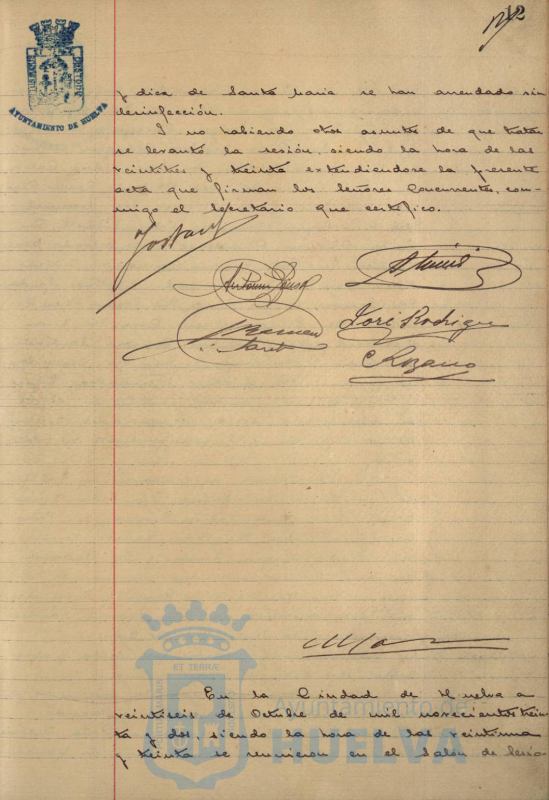 12
AYUNTAMIENTO DE HUELVA
y dica de Santa Maria se han arrendado sin
desinfección.
I no habiendo otros asuntos de que tratar
se levantó la sesión, siendo la hora de las
veintitres y treinta extendiendose la presente
acta que firman los señores concurrentes, con-
migo el Secretario que certifico.
Antonio
José Rodriguez
ET TERRÆ
En la Ciudad de Huelva a
veintiseis de Octubre de mil novecientos trein
ta y dos siendo la hora de las veintiuna
y treinta se reunieron en el Salón de Sesio-
Ayuntamiento de
HUELVA